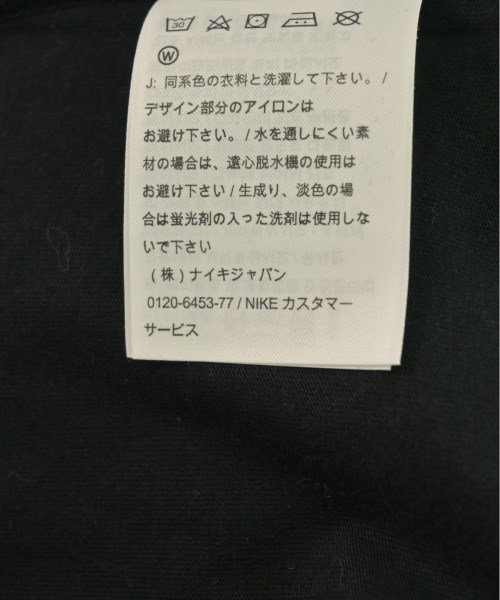 30
W
J: 同系色の衣料と洗濯して下さい。 /
デザイン部分のアイロンは
お避け下さい。 / 水を通しにくい素
材の場合は、遠心脱水機の使用は
お避け下さい / 生成り、淡色の場
合は蛍光剤の入った洗剤は使用しな
いで下さい
(株) ナイキジャパン
0120-6453-77 / NIKE カスタマー
サービス